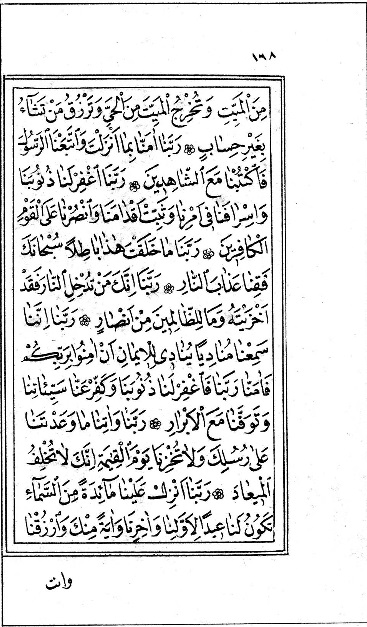 ١٦٨
مِنَ الْمَيِّتِ وَتُخْرِجُ الْمَيِّتَ مِنَ الْحَيِّ وَتَرْزُقُ مَنْ تَشَاءُ
بِغَيْرِ حِسَابٍ ❁ رَبَّنَا اٰمَنَّا بِمَا اَنْزَلْتَ وَاتَّبَعْنَا الرَّسُولَ
فَاكْتُبْنَا مَعَ الشَّاهِدِينَ ❁ رَبَّنَا اغْفِرْ لَنَا ذُنُوبَنَا
وَاِسْرَافَنَا فِى اَمْرِنَا وَثَبِّتْ اَقْدَامَنَا وَانْصُرْنَا عَلَى الْقَوْمِ
الْكَافِرِينَ ❁ رَبَّنَا مَا خَلَقْتَ هٰذَا بَاطِلًا سُبْحَانَكَ
فَقِنَا عَذَابَ النَّارِ ❁ رَبَّنَا اِنَّكَ مَنْ تُدْخِلِ النَّارَ فَقَدْ
اَخْزَيْتَهُ وَمَا لِلظَّالِمِينَ مِنْ اَنْصَارٍ ❁ رَبَّنَا اِنَّنَا
سَمِعْنَا مُنَادِيًا يُنَادِى لِلْاِيمَانِ اَنْ اٰمِنُوا بِرَبِّكُمْ
فَاٰمَنَّا رَبَّنَا فَاغْفِرْ لَنَا ذُنُوبَنَا وَكَفِّرْ عَنَّا سَيِّئَاتِنَا
وَتَوَفَّنَا مَعَ الْاَبْرَارِ ❁ رَبَّنَا وَاٰتِنَا مَا وَعَدْتَنَا
عَلٰى رُسُلِكَ وَلَا تُخْزِنَا يَوْمَ الْقِيٰمَةِ اِنَّكَ لَا تُخْلِفُ
الْمِيعَادَ ❁ رَبَّنَا اَنْزِلْ عَلَيْنَا مَائِدَةً مِنَ السَّمَاءِ
تَكُونُ لَنَا عِيدًا لِاَوَّلِنَا وَاٰخِرِنَا وَاٰيَةً مِنْكَ وَارْزُقْنَا
وانت